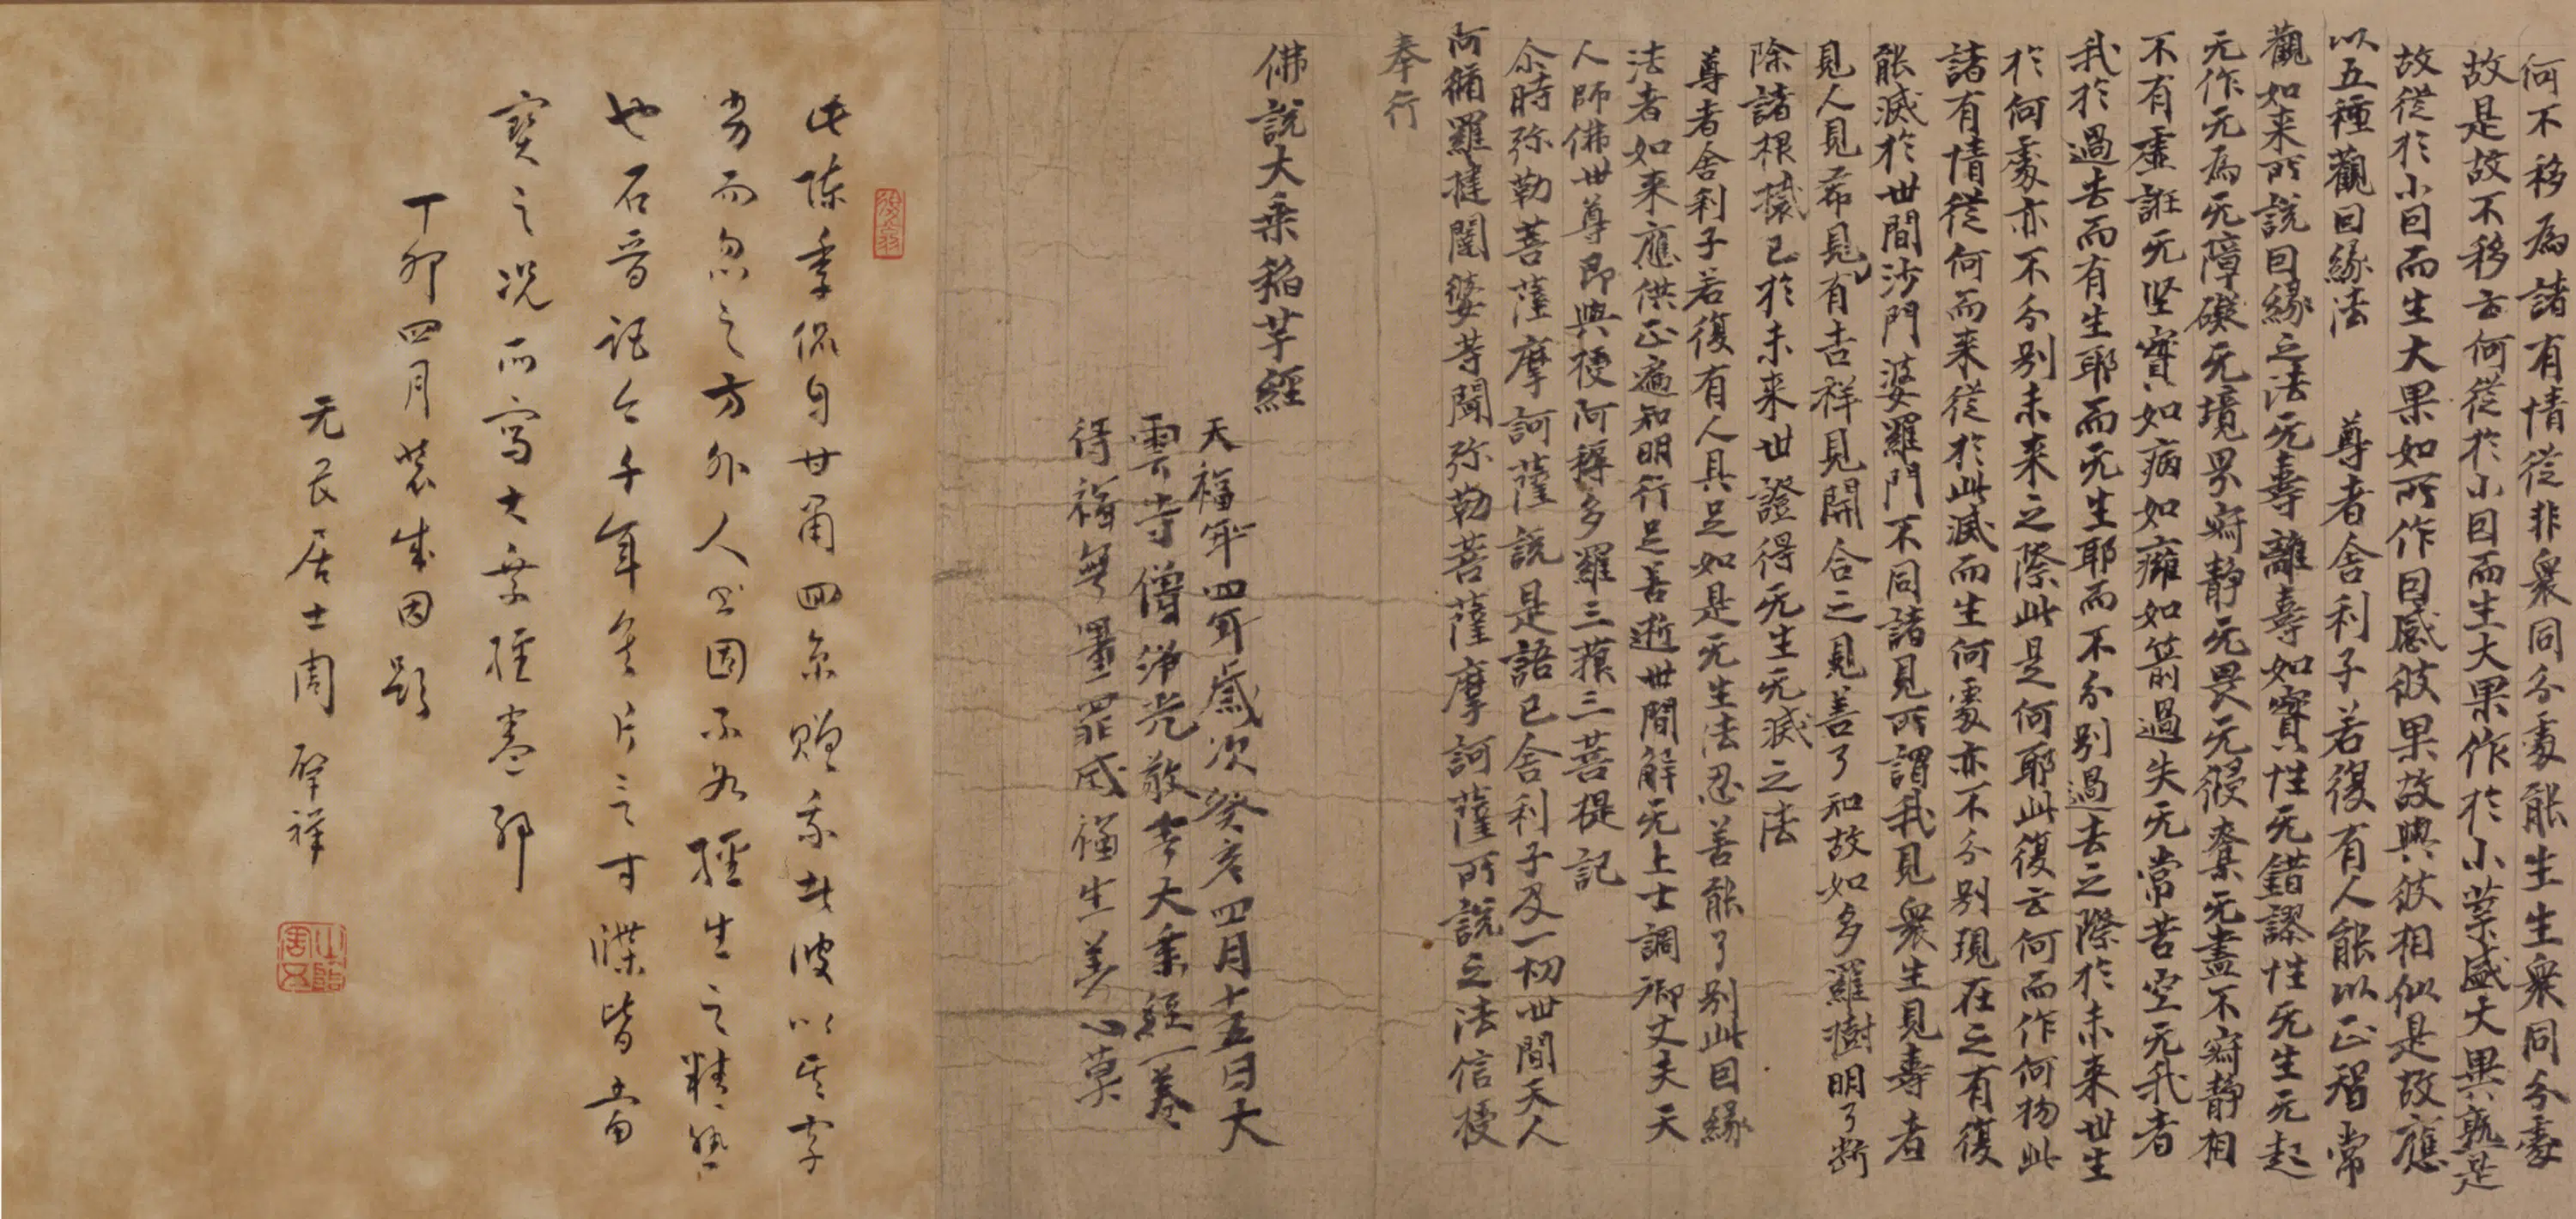 何不移為諸有情從非眾同分處能生生眾同分處
故是故不移云何從於小因而生大果作於小業感大異熟是
故從於小因而生大果如所作因感彼果故與彼相似是故應
以五種觀因緣法　尊者舍利子若復有人能以正智常
觀如来所說因緣之法无壽離壽如實性无錯謬性无生无起
无作无為无障礙无境界寂静无畏无侵奪无盡不寂静相
不有虛誑无坚實如病如癰如箭過失无常苦空无我者
我於過去而有生耶而无生耶而不分别過去之際於未来世生
於何處亦不分别未来之際此是何耶此復云何而作何物此
諸有情從何而来從於此滅而生何處亦不分别現在之有復
能滅於世間沙門婆羅門不同諸見所謂我見衆生見壽者
見人見希見有吉祥見開合之見善了知故如多羅樹明了断
除諸根樣已於未来世證得无生无滅之法
尊者舍利子若復有人具足如是无生法忍善能了别此因緣
法者如来應供正遍知明行足善逝世間解无上士調御丈夫天
人師佛世尊即與授阿耨多羅三藐三菩提記
尒時弥勒菩薩摩訶薩說是語已舍利子及一切世間天人
阿脩羅揵闥婆等聞弥勒菩薩摩訶薩所說之法信授
奉行
佛說大乘稲芉經
天福年四年歲次癸亥四月十五日大
雲寺僧淨光敬書大乘經一卷
得福無量罪咸福生善心莫
此陈季侃自甘甬四京贈我者彼以其字
劣而忽之方外人书固不如經生之精熟
也石晋距今千年矣片言寸牒皆當
寶之况所寫大乘經卷邪
丁卯四月裝成因題
无畏居士周肇祥